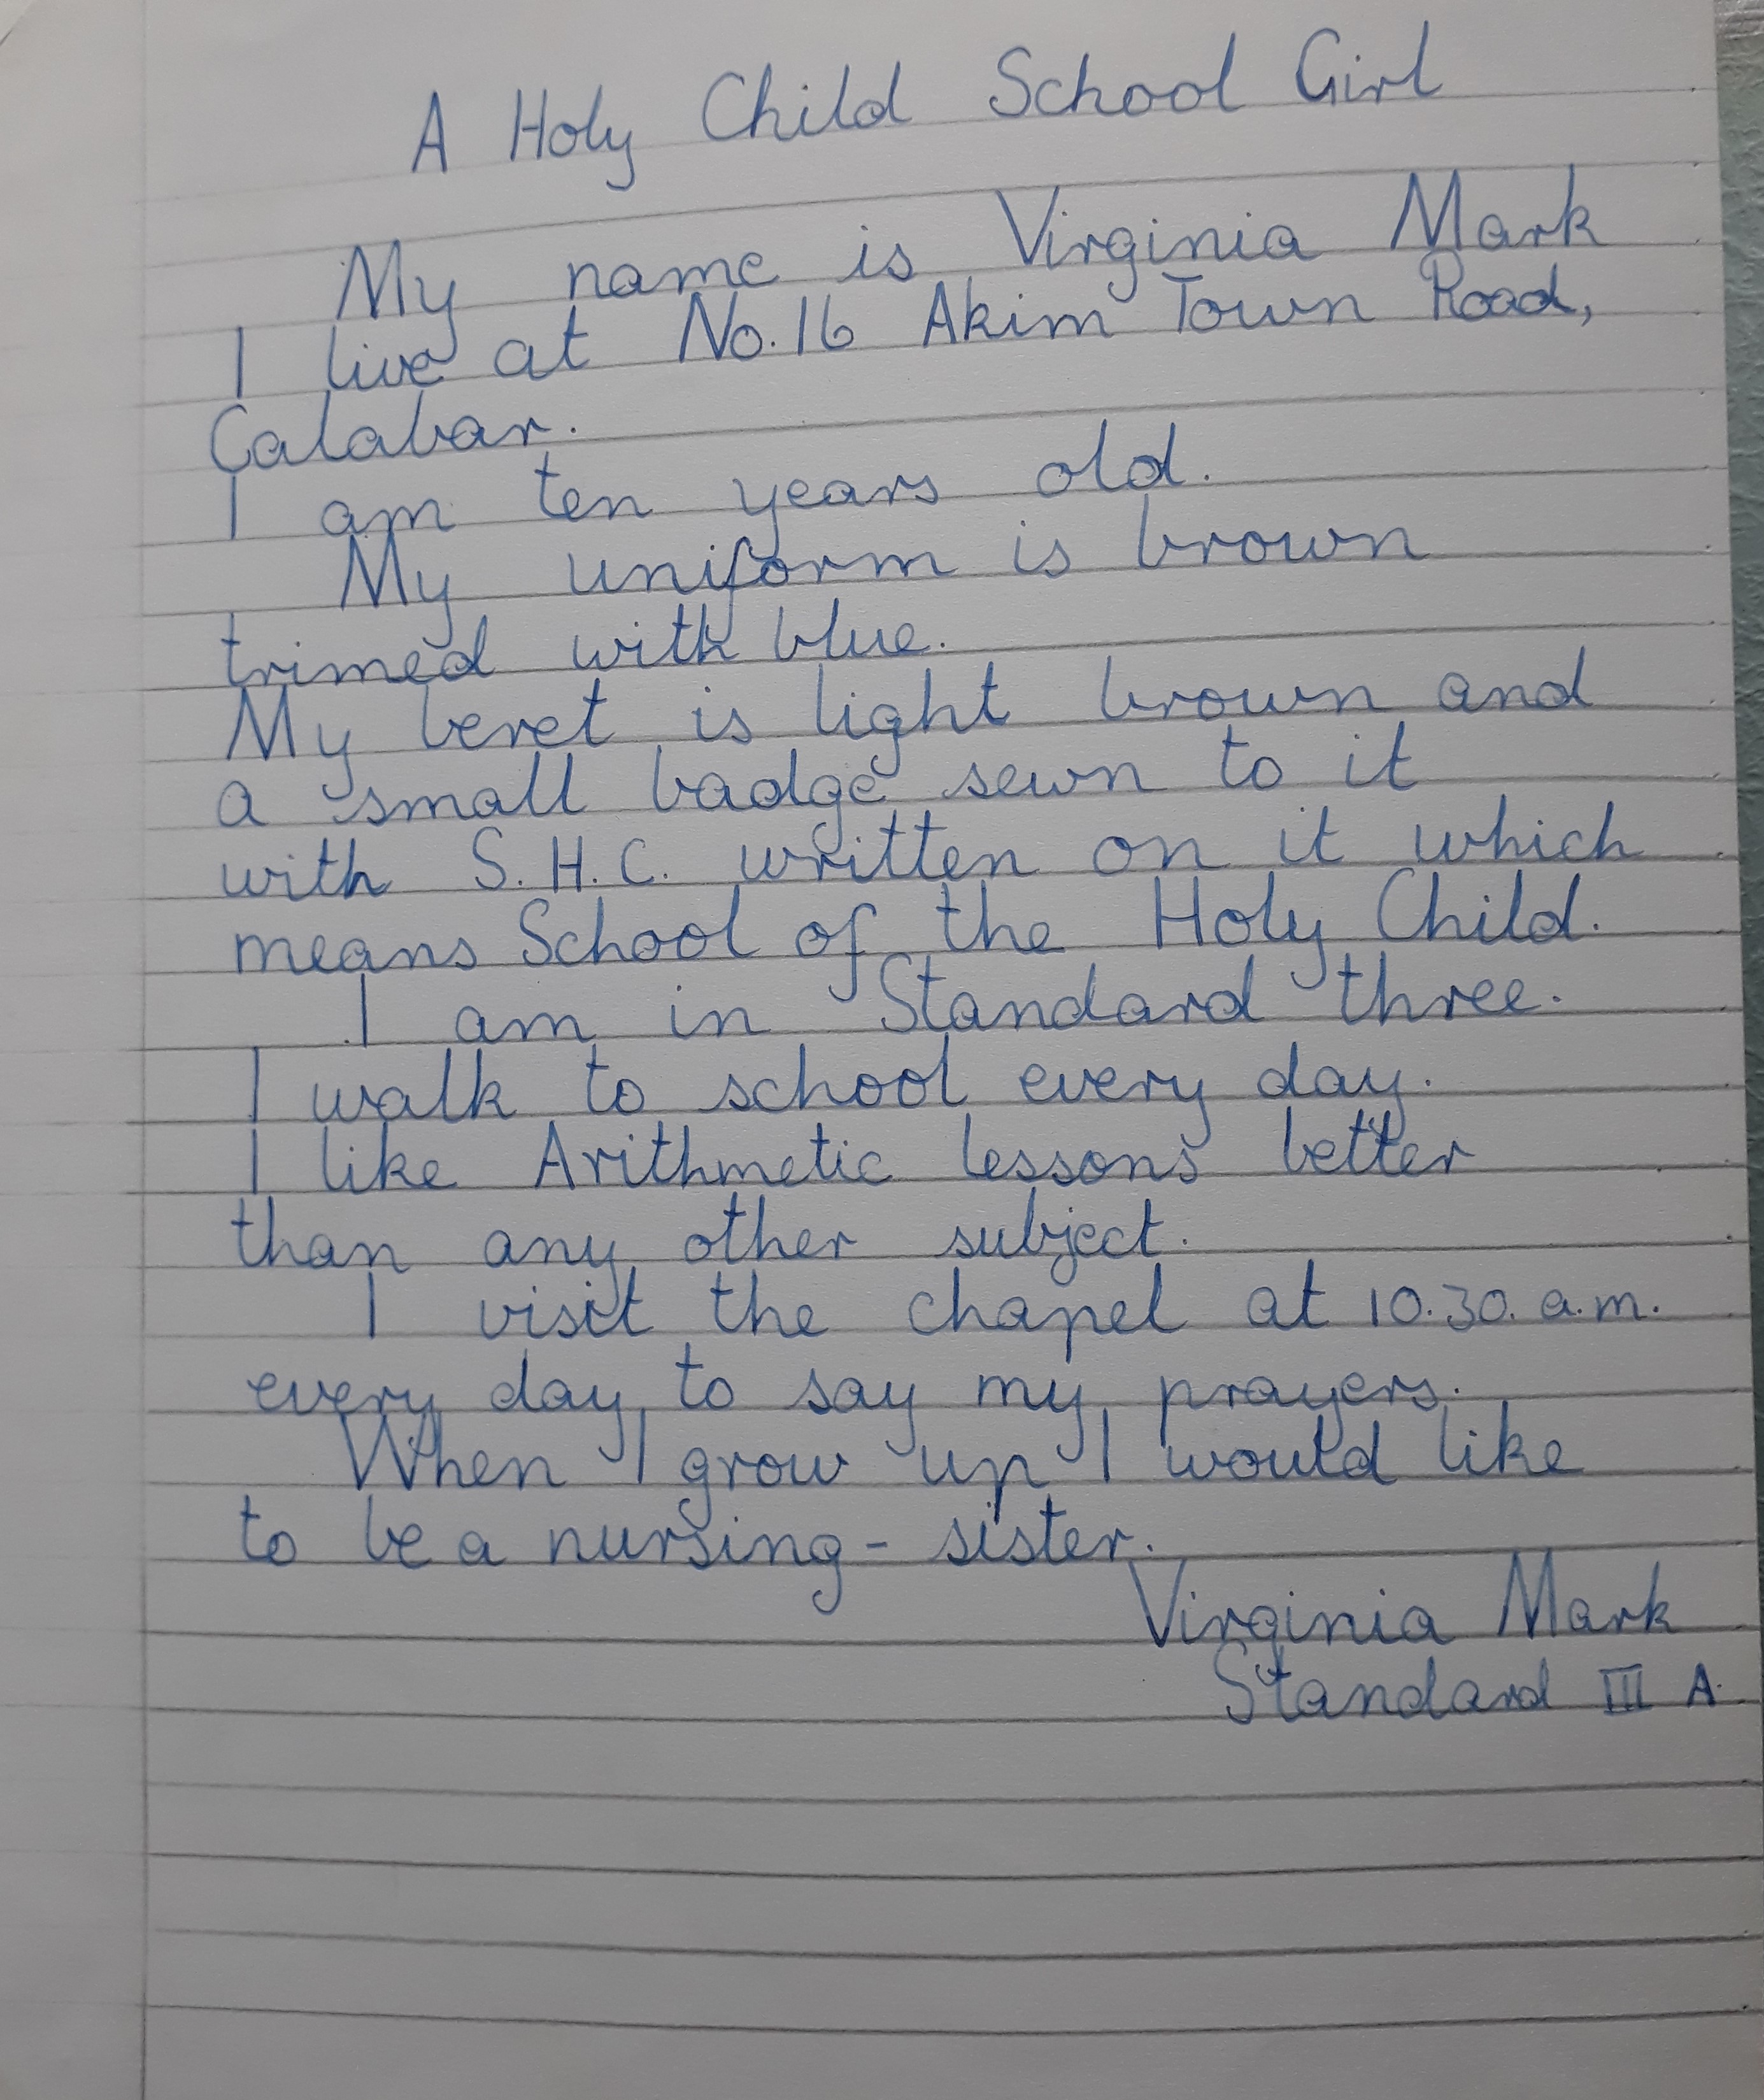 A Holy Child School Girl
My name is Virginia Mark
I live at No.16 Akim Town Road,
Calabar.
I am ten years old.
My uniform is brown
trimed with blue.
My beret is light brown and
a small badge sewn to it
with S.H.C. written on it which
means School of the Holy Child.
I am in Standard three.
I walk to school every day.
I like Arithmetic lessons better
than any other subject.
I visit the chapel at 10.30. a.m.
every day to say my prayers.
When I grow up I would like
to be a nursing-sister.
Virginia Mark
Standard III A.